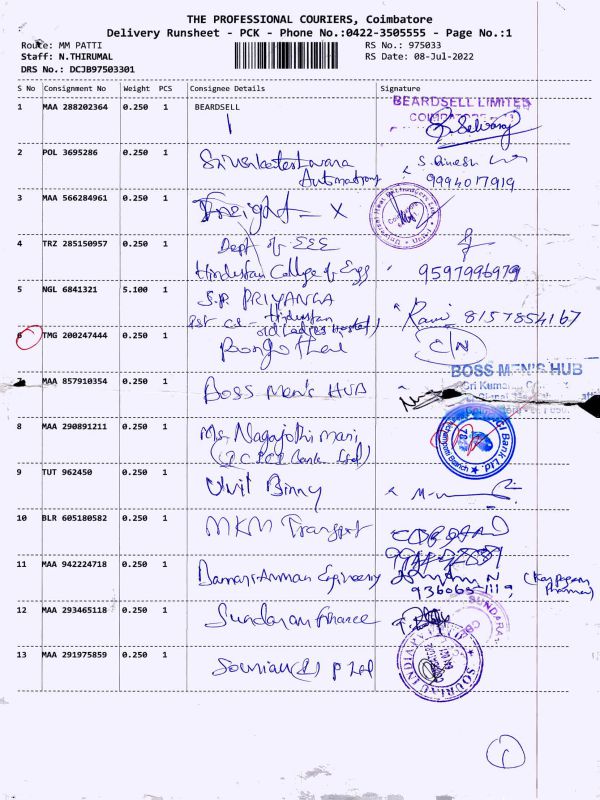 THE PROFESSIONAL COURIERS, Coimbatore
Delivery Runsheet - PCK - Phone No.:0422-3505555 - Page No.:1
Route: MM PATTI RS No.: 975033
Staff: N.THIRUMAL RS Date: 08-Jul-2022
DRS No.: DCJB97503301
S No Consignment No Weight PCS Consignee Details Signature
1 MAA 288202364 0.250 1 BEARDSELL BEARDSELL LIMITED
2 POL 3695286 0.250 1 Srivenkateshwara
Automations 9994017919
3 MAA 566284961 0.250 1 Freight - X
4 TRZ 285150957 0.250 1 Dept of EEE
Hindustan College of Engg 9597996979
5 NGL 6841321 5.100 1 S.P. PRIYANGA
Hindustan
old Ladies Hostel) 8157854167
6 TMG 200247444 0.250 1 C/N
7 MAA 857910354 0.250 1 Boss Men's HUB BOSS MEN'S HUB
8 MAA 290891211 0.250 1 Ms. Nagajothi mari
Bank Ltd) Bank Ltd.
9 TUT 962450 0.250 1 Binny
10 BLR 605180582 0.250 1 MKM Transport
11 MAA 942224718 0.250 1 Amman Engineering
12 MAA 293465118 0.250 1 Sundaram finance SUNDARA
13 MAA 291975859 0.250 1 Souriau P Ltd SOURIAU INDIA
1